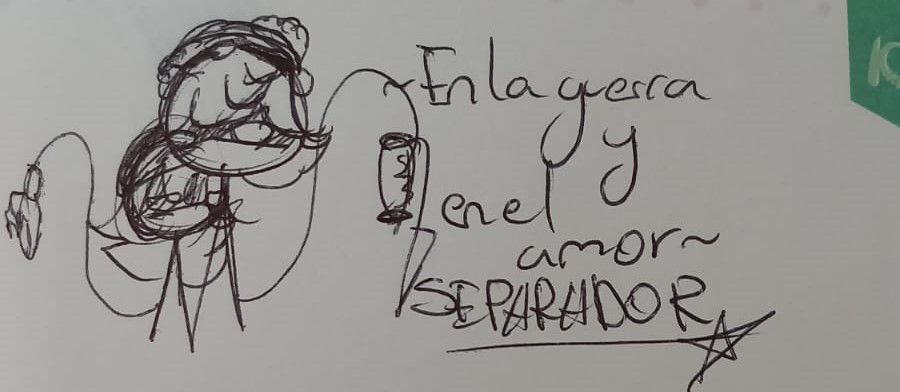 En la guerra
y
en el
amor~
SEPARADOR